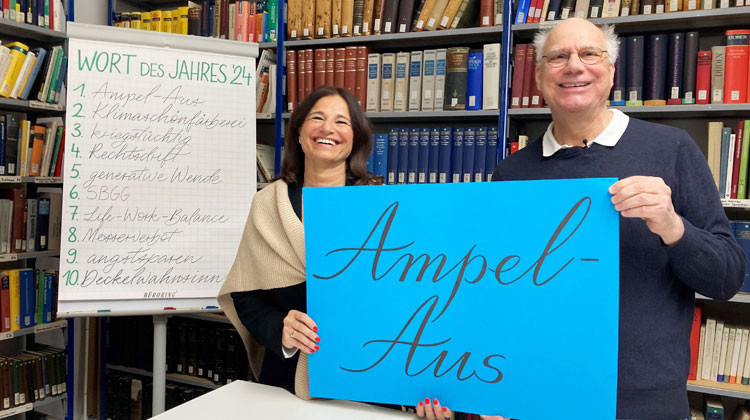 WORT DES JAHRES '24
1. Ampel-Aus
2. Klimaschönfärberei
3. kriegstüchtig
4. Rechtsdrift
5. generative Wende
6. SBGG
7. Life-Work-Balance
8. Messerverbot
9. angstsparen
10. Deckelwahnsinn
Ampel-
Aus